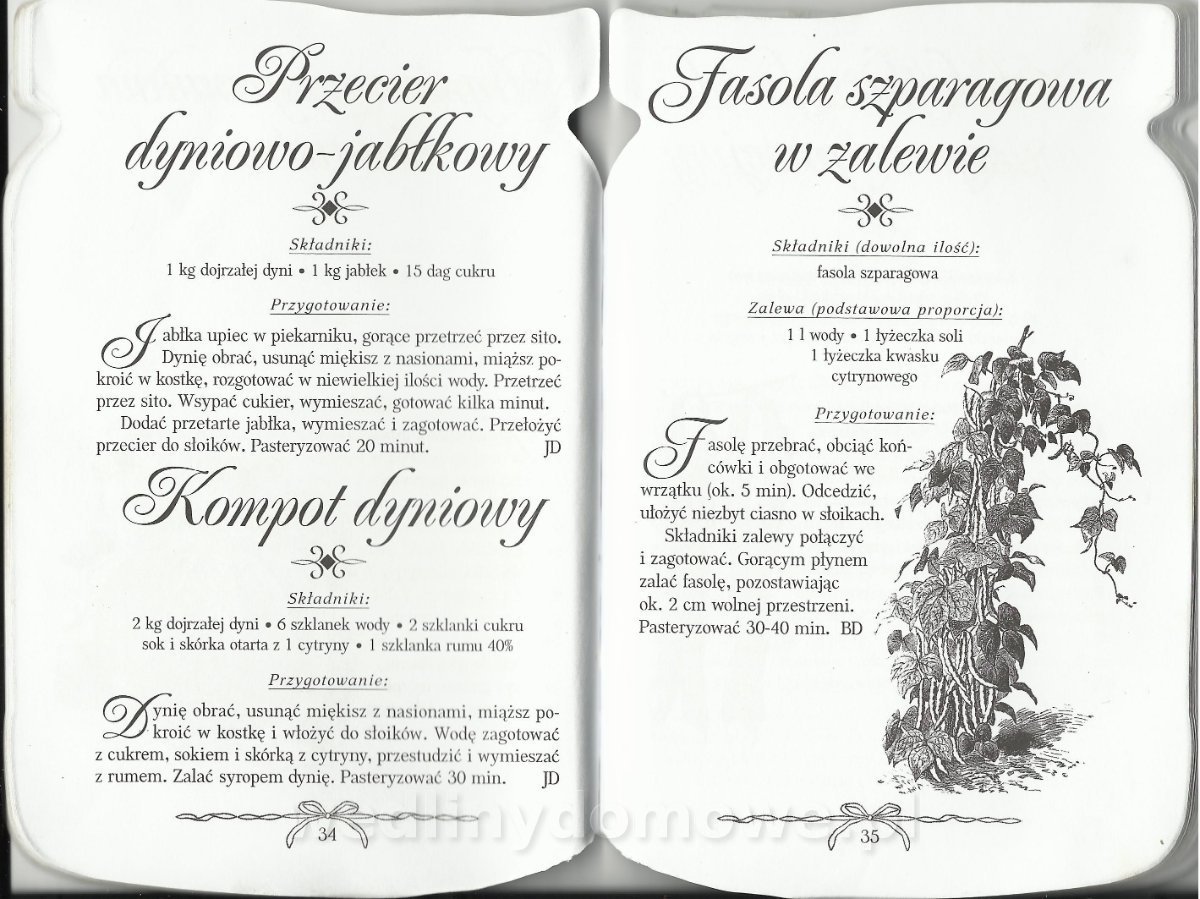 Przecier
dyniowo-jabłkowy
Składniki:
1 kg dojrzałej dyni • 1 kg jabłek • 15 dag cukru
Przygotowanie:
Jabłka upiec w piekarniku, gorące przetrzeć przez sito.
Dynię obrać, usunąć miękisz z nasionami, miąższ po-
kroić w kostkę, rozgotować w niewielkiej ilości wody. Przetrzeć
przez sito. Wsypać cukier, wymieszać, gotować kilka minut.
Dodać przetarte jabłka, wymieszać i zagotować. Przełożyć
przecier do słoików. Pasteryzować 20 minut. JD
Kompot dyniowy
Składniki:
2 kg dojrzałej dyni • 6 szklanek wody • 2 szklanki cukru
sok i skórka otarta z 1 cytryny • 1 szklanka rumu 40%
Przygotowanie:
Dynię obrać, usunąć miękisz z nasionami, miąższ po-
kroić w kostkę i włożyć do słoików. Wodę zagotować
z cukrem, sokiem i skórką z cytryny, przestudzić i wymieszać
z rumem. Zalać syropem dynię. Pasteryzować 30 min. JD
34
Fasola szparagowa
w zalewie
Składniki (dowolna ilość):
fasola szparagowa
Zalewa (podstawowa proporcja):
1 l wody • 1 łyżeczka soli
1 łyżeczka kwasku
cytrynowego
Przygotowanie:
Fasolę przebrać, obciąć koń-
cówki i obgotować we
wrzątku (ok. 5 min). Odcedzić,
ułożyć niezbyt ciasno w słoikach.
Składniki zalewy połączyć
i zagotować. Gorącym płynem
zalać fasolę, pozostawiając
ok. 2 cm wolnej przestrzeni.
Pasteryzować 30-40 min. BD
35
wedlinydomowe.pl